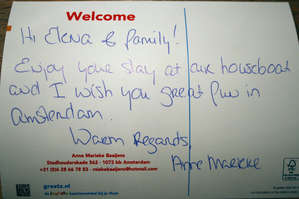 Welcome
Hi Elena & family!
Enjoy your stay at our houseboat
and I wish you great fun in
Amsterdam.
Warm Regards,
Anne Marieke
Anne Marieke Baaijens
Stadhouderskade 562 - 1072 bb Amsterdam
greetz.nl